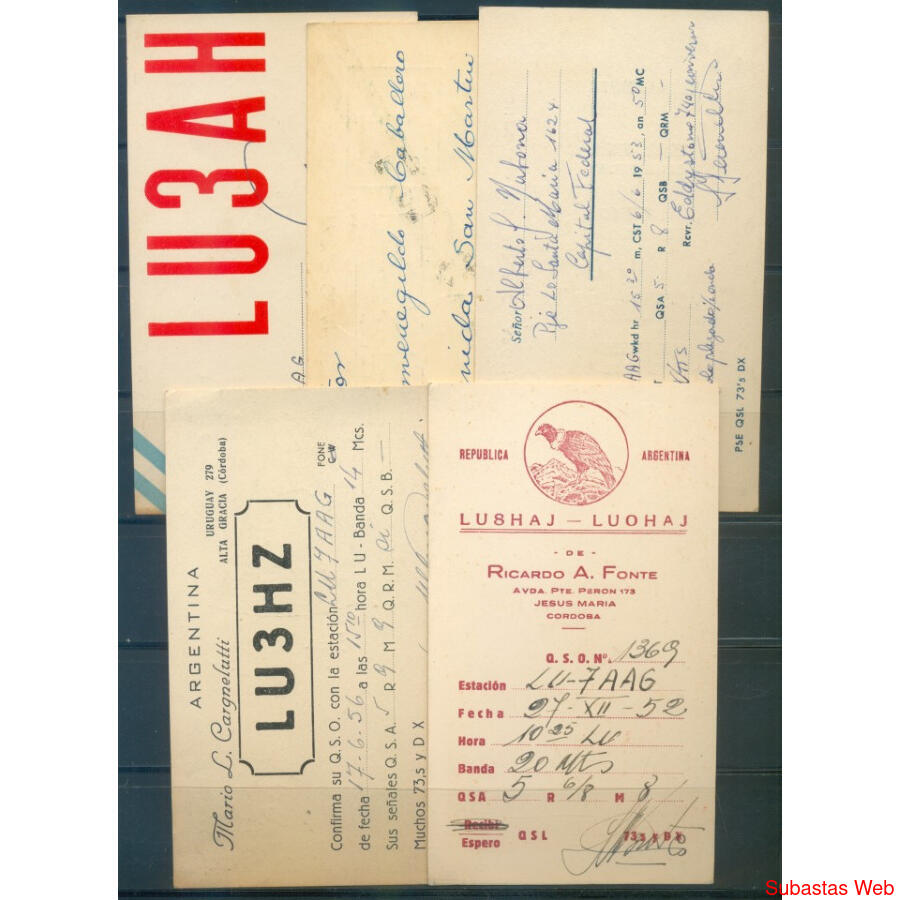 LU3AH
A A G
Hermenegildo Caballero
Avenida San Martin
Señor Alberto
Pje Santa María 1624
Capital Federal
AAG wkd hr 15 30 m, CST 6/6 1953, an 50 MC
QSA 5 R 8 QSB — QRM —
Rcvr. Eddystone 740,
PSE QSL 73's DX
ARGENTINA
URUGUAY 279
ALTA GRACIA (Córdoba)
Mario L. Cargnelutti
LU3HZ
FONE
CW
Confirma su Q.S.O. con la estación LU7AAG
de fecha 17-6-56 a las 15 10 hora LU - Banda 14 Mcs.
Sus señales Q.S.A. 5 R 9 M 9 Q.R.M. Q.S.B. —
Muchos 73,s y D X
REPUBLICA ARGENTINA
LU8HAJ — LUOHAJ
- DE -
RICARDO A. FONTE
AVDA. PTE. PERON 173
JESUS MARIA
CORDOBA
Q. S. O. Nº. 1369
Estación LU-7AAG
Fecha 27-XII-52
Hora 10 25 LU
Banda 20 Mts
QSA 5 R 6/8 M 8
Recibí
Espero QSL 73s y DX
Subastas Web